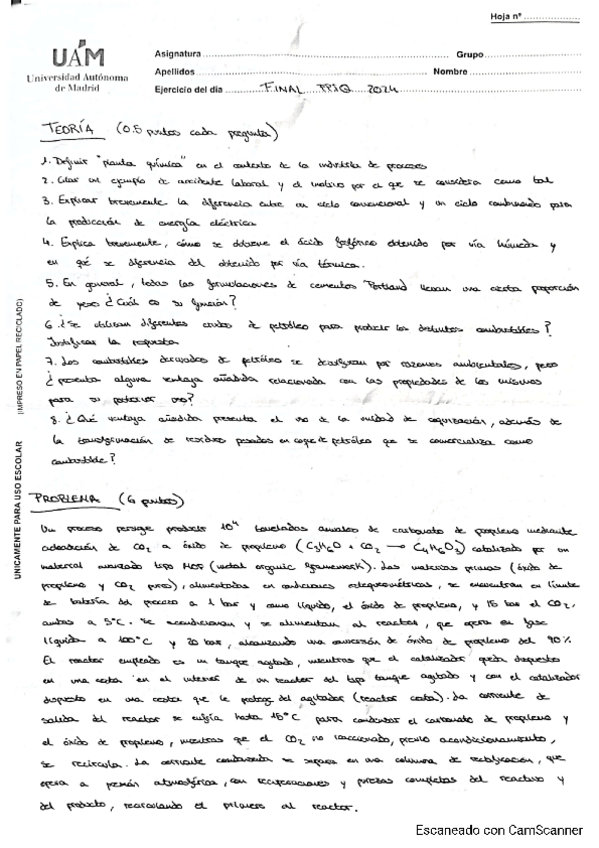 Hoja nº
UAM
Universidad Autónoma
de Madrid
Asignatura Grupo
Apellidos Nombre
Ejercicio del día FINAL PPIQ 2024
TEORÍA (0.5 puntos cada pregunta)
1. Definir "planta química" en el contexto de la industria de procesos
2. Citar un ejemplo de accidente laboral y el motivo por el que se considera como tal
3. Explicar brevemente la diferencia entre un ciclo convencional y un ciclo combinado para
la producción de energía eléctrica
4. Explica brevemente, cómo se obtiene el ácido fosfórico obtenido por vía húmeda y
en qué se diferencia del obtenido por vía térmica.
5. En general, todas las formulaciones de cementos Portland llevan una cierta proporción
de yeso ¿Cuál es su función?
6. ¿Se utilizan diferentes crudos de petróleo para producir los distintos combustibles?
Justificar la respuesta
7. Los combustibles derivados de petróleo se desulfuran por razones ambientales, pero
¿presenta alguna ventaja añadida relacionada con las propiedades de los mismos
para su posterior uso?
8. ¿Qué ventaja añadida presenta el uso de la unidad de coquización, además de
la transformación de residuos pesados en coque de petróleo que se comercializa como
combustible?
PROBLEMA (6 puntos)
Un proceso persigue producir 10⁴ toneladas anuales de carbonato de propileno mediante
cicloadición de CO₂ a óxido de propileno (C₃H₆O + CO₂ → C₄H₆O₃) catalizado por un
material avanzado tipo MOF (metal organic framework). Las materias primas (óxido de
propileno y CO₂ puros), alimentadas en condiciones estequiométricas, se encuentran en límite
de batería del proceso a 1 bar y como líquido, el óxido de propileno, y 15 bar el CO₂,
ambas a 5°C. Se acondicionan y se alimentan al reactor, que opera en fase
líquida a 100°C y 20 bar, alcanzando una conversión de óxido de propileno del 90%
El reactor empleado es un tanque agitado, mientras que el catalizador queda dispuesto
en una cesta en el interior de un reactor del tipo tanque agitado y con el catalizador
dispuesto en una cesta que le protege del agitador (reactor cesta). La corriente de
salida del reactor se enfría hasta 15°C para condensar el carbonato de propileno y
el óxido de propileno, mientras que el CO₂ no reaccionado, previo acondicionamiento,
se recircula. La corriente condensada se separa en una columna de rectificación, que
opera a presión atmosférica, con recuperaciones y purezas completas del reactivo y
del producto, recirculando el primero al reactor.
UNICAMENTE PARA USO ESCOLAR (IMPRESO EN PAPEL RECICLADO)
Escaneado con CamScanner